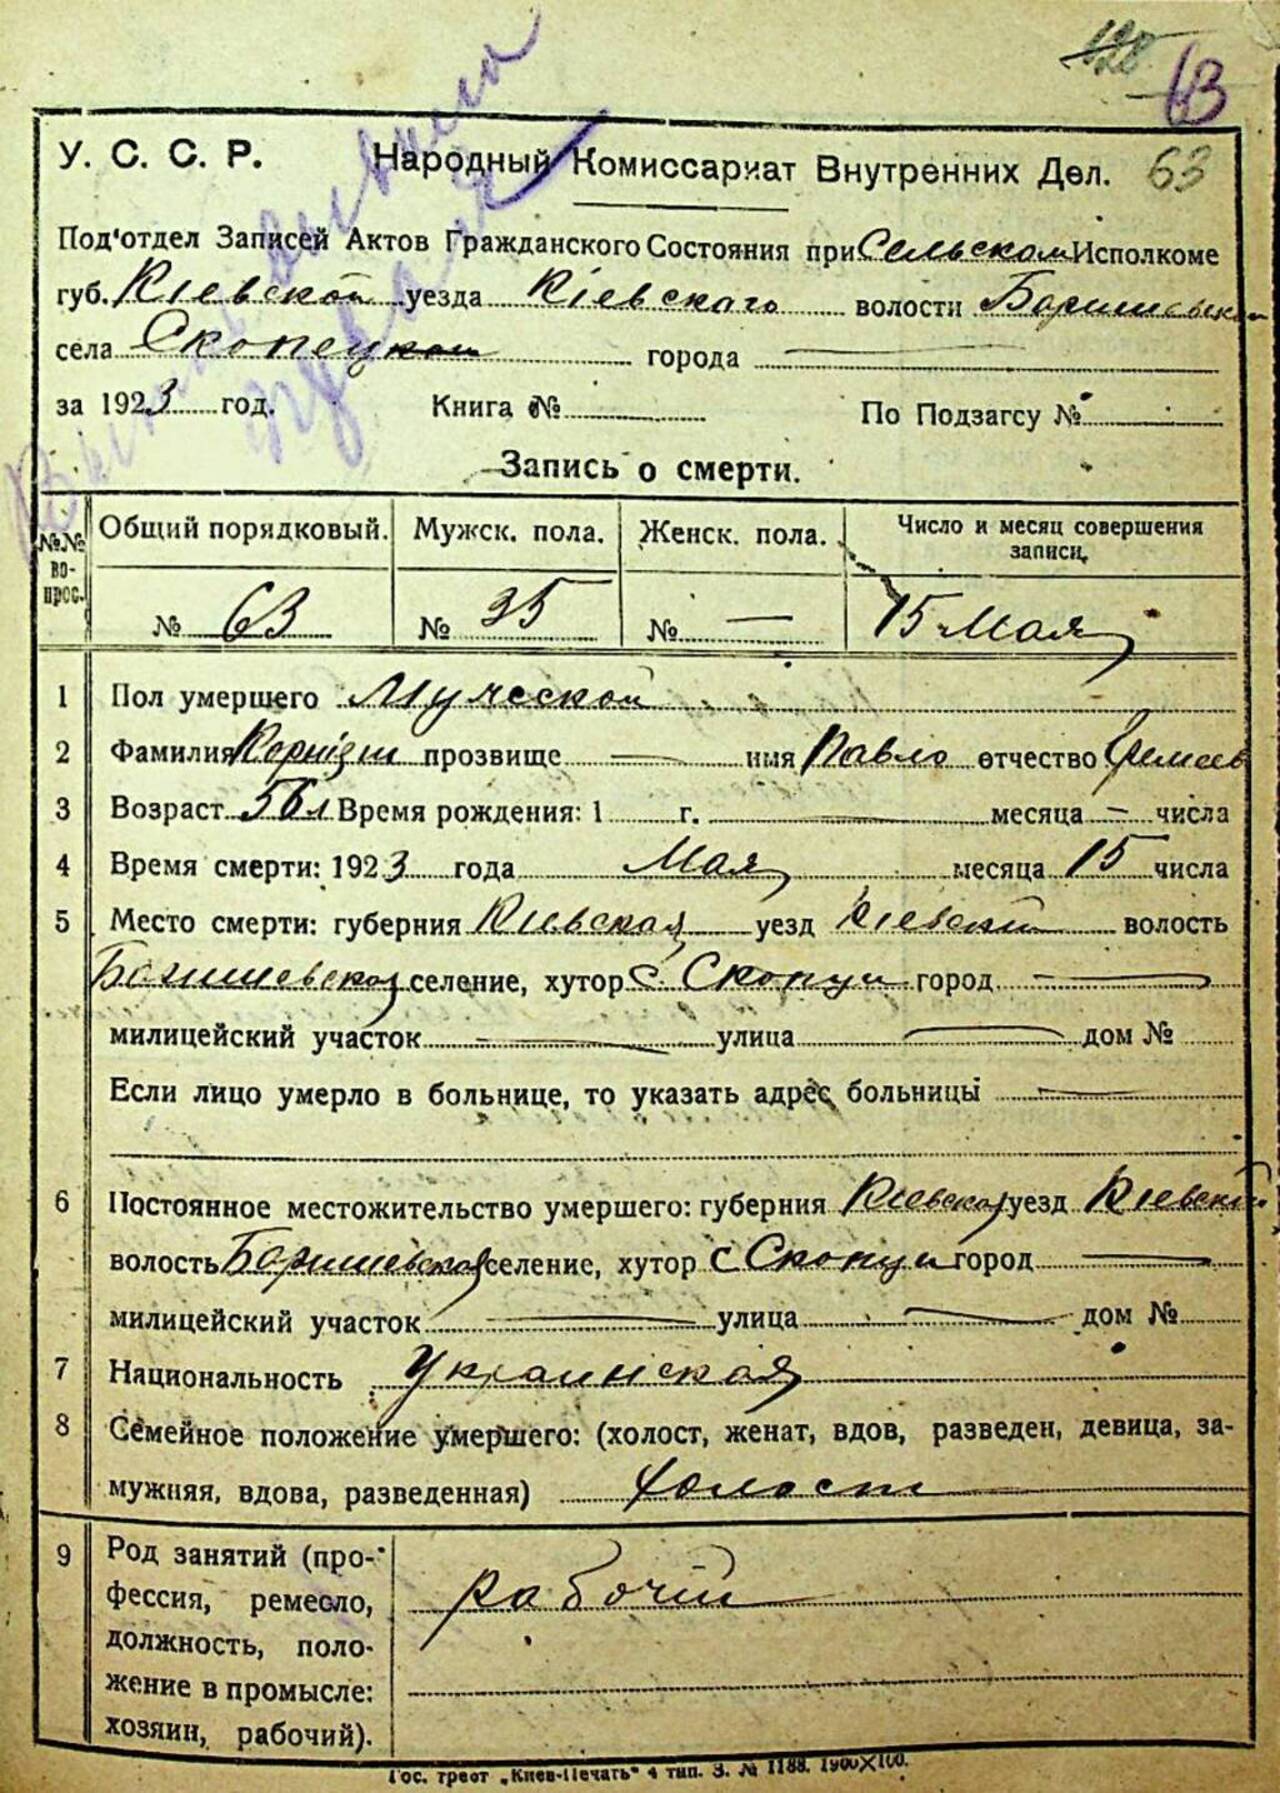 128
63
У. С. С. Р. Народный Комиссариат Внутренних Дел. 63
Под'отдел Записей Актов Гражданского Состояния при Сельском Исполкоме
губ. Кіевской уезда Кіевскаго волости
села города
за 1923 год. Книга № По Подзагсу №
Запись о смерти.
№№ во- прос. Общий порядковый. Мужск. пола. Женск. пола. Число и месяц совершения записи,
№ 63 № 35 № — 15 Мая
1 Пол умершего Мужской
2 Фамилия прозвище — имя Павло отчество
3 Возраст 56 л Время рождения: 1 г. — месяца — числа
4 Время смерти: 1923 года Мая месяца 15 числа
5 Место смерти: губерния Кіевская уезд Кіевскій волость
селение, хутор с. Скопци город —
милицейский участок — улица — дом №
Если лицо умерло в больнице, то указать адрес больницы —
6 Постоянное местожительство умершего: губерния Кіевская уезд Кіевскій
волость селение, хутор с Скопци город —
милицейский участок — улица — дом №
7 Национальность Украинская
8 Семейное положение умершего: (холост, женат, вдов, разведен, девица, за-
мужняя, вдова, разведенная) холост
9 Род занятий (про-
фессия, ремесло, рабочій
должность, поло-
жение в промысле:
хозяин, рабочий).
Гос. трест „Киев-Печать" 4 тип. З. № 1188. 1900✕100.